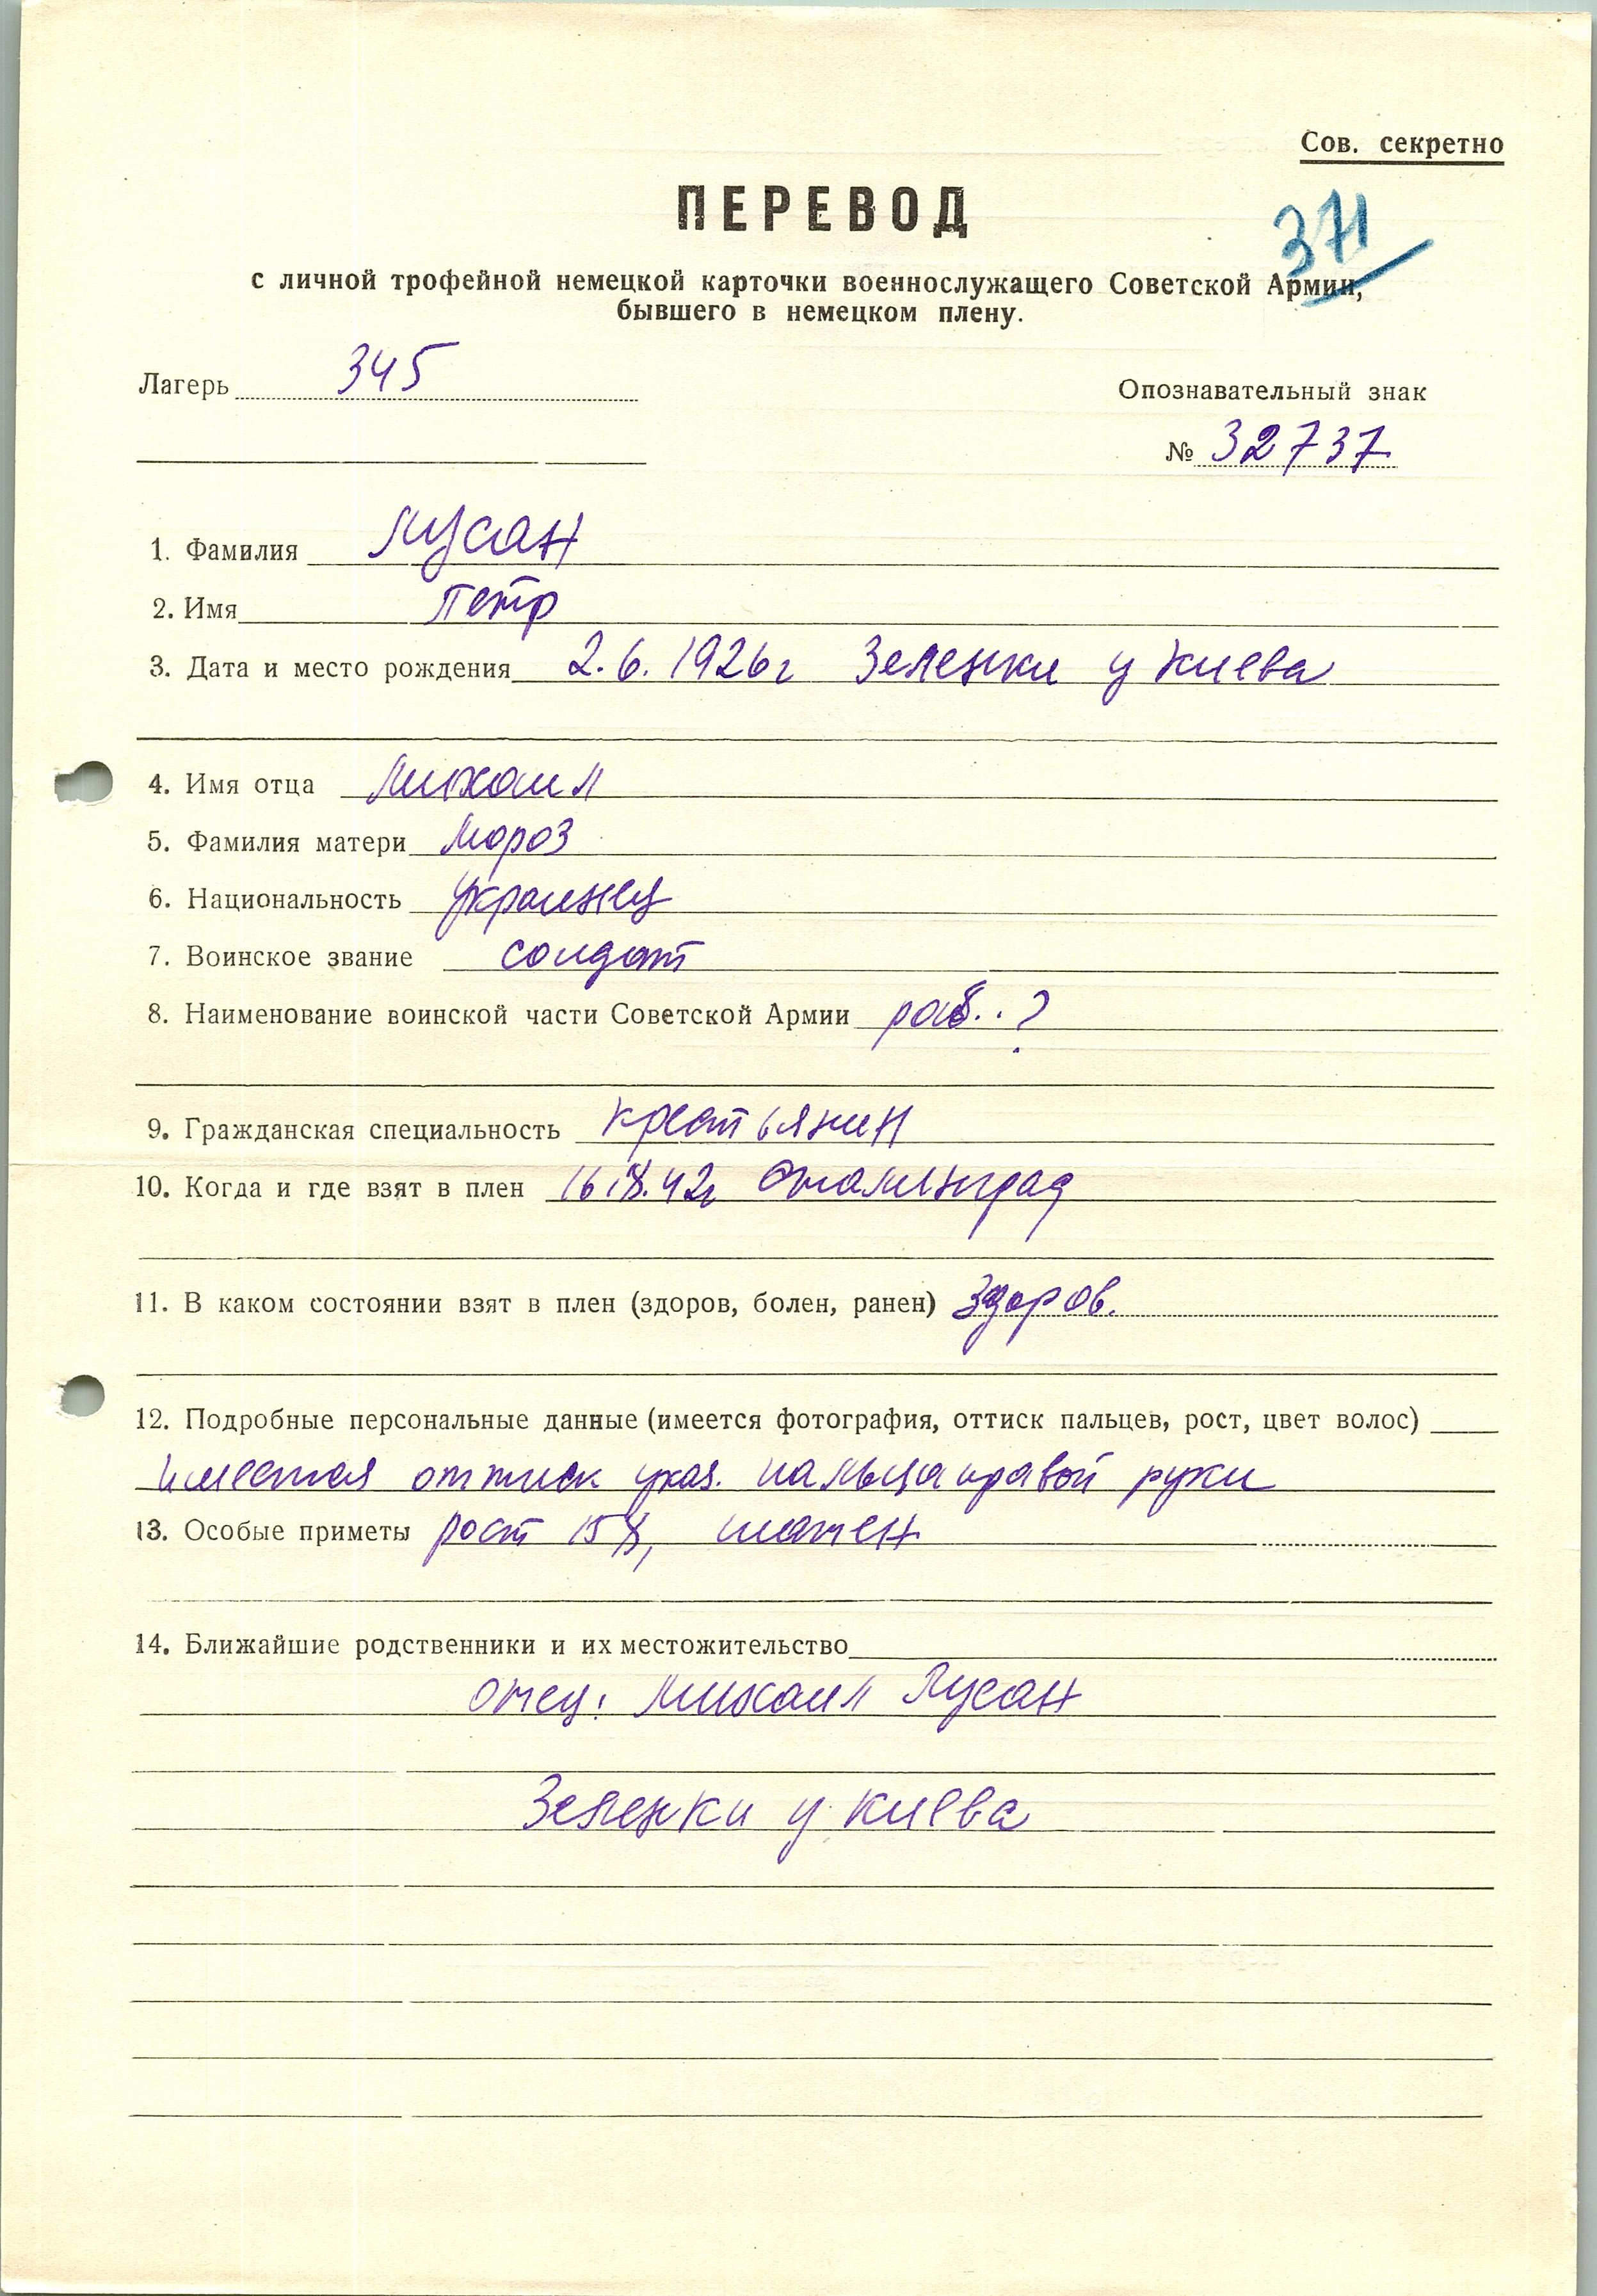 Сов. секретно
ПЕРЕВОД
371
с личной трофейной немецкой карточки военнослужащего Советской Армии,
бывшего в немецком плену.
Лагерь 345
Опознавательный знак
№ 32737
1. Фамилия Лусан
2. Имя Петр
3. Дата и место рождения 2.6.1926 г Зеленки у Киева
4. Имя отца Михаил
5. Фамилия матери Мороз
6. Национальность украинец
7. Воинское звание солдат
8. Наименование воинской части Советской Армии раб..?
9. Гражданская специальность крестьянин
10. Когда и где взят в плен Сталинград
11. В каком состоянии взят в плен (здоров, болен, ранен) здоров.
12. Подробные персональные данные (имеется фотография, оттиск пальцев, рост, цвет волос)
имеется оттиск указ. пальца правой руки
13. Особые приметы рост 158, шатен
14. Ближайшие родственники и их местожительство
отец: Михаил Лусан
Зеленки у Киева